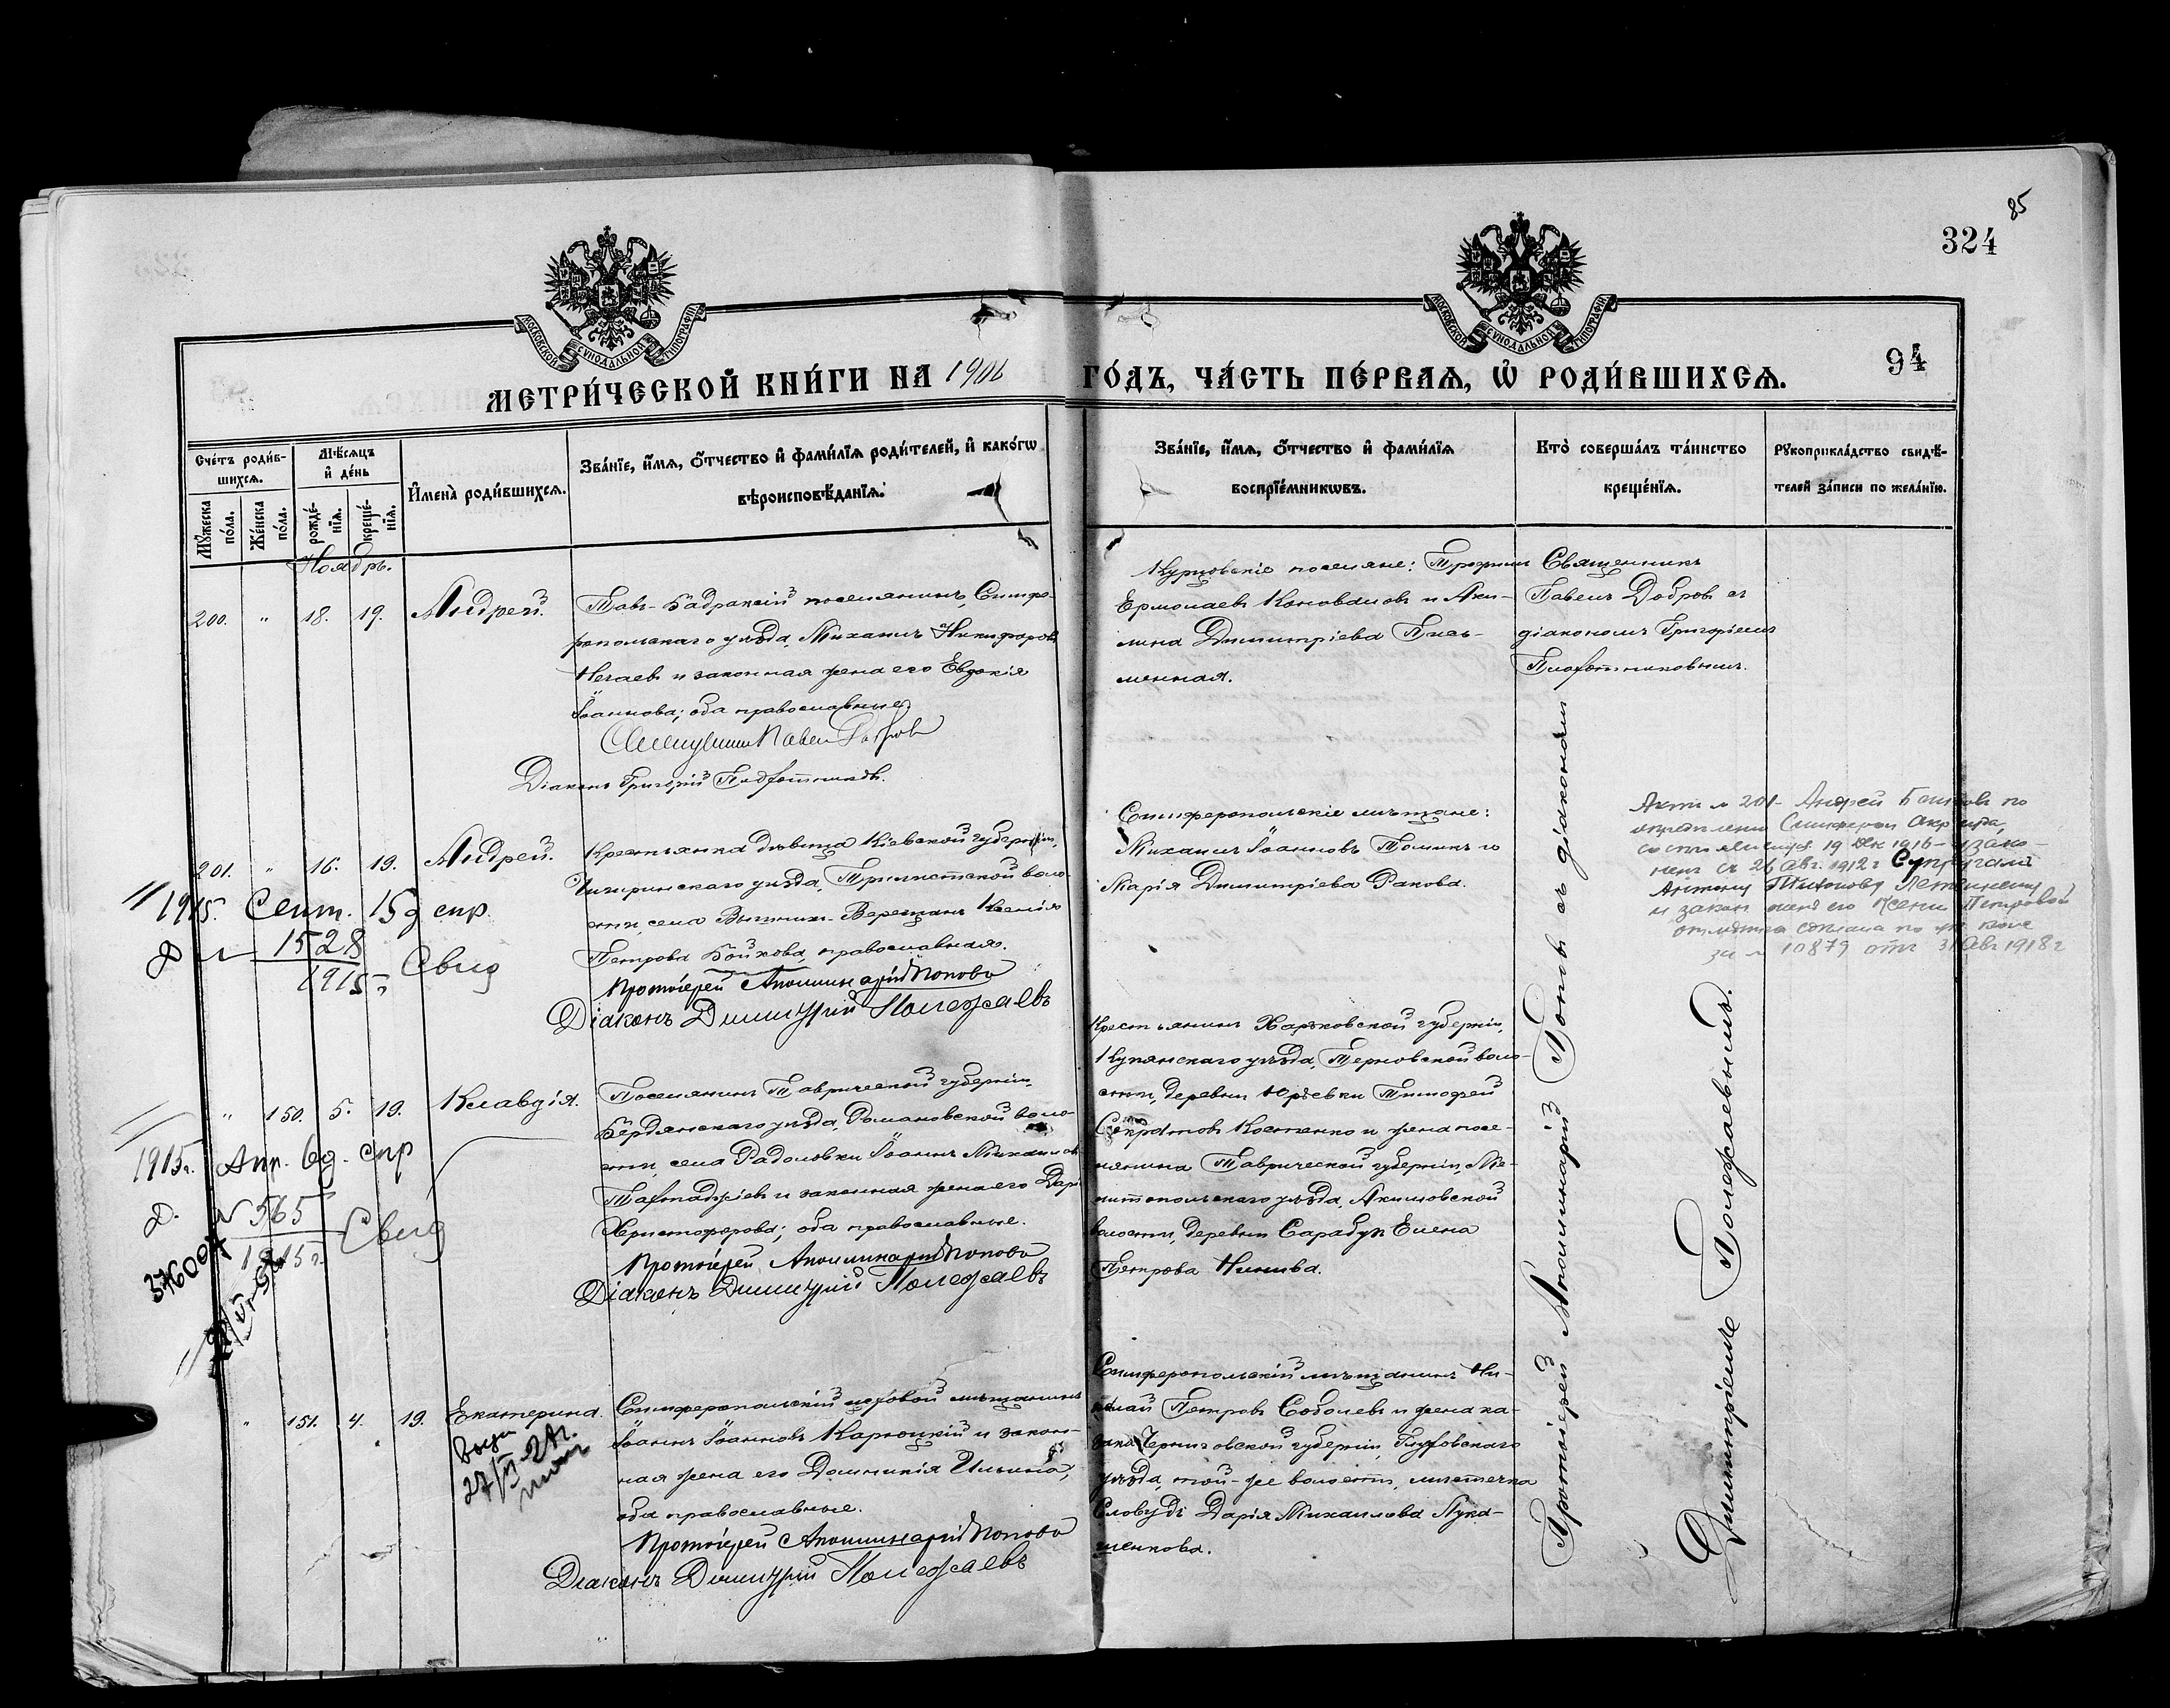 85
324
94
МОСКОВСКОЙ СУНОДАЛЬНОЙ ТИПОГРАФІИ
МОСКОВСКОЙ СУНОДАЛЬНОЙ ТИПОГРАФІИ
МЕТРИ́ЧЕСКОЙ КНИ́ГИ НА 1906 ГО́ДЪ, ЧА́СТЬ ПЕ́РВАЯ, Ѡ҆ РОДИ́ВШИХСЯ.
Сче́тъ роди́в-
шихся.
Мѣ́сяцъ
и҆ де́нь
Му́жеска по́ла.
Же́нска по́ла.
рожде́-нїя.
креще́-нїя.
И҆мена̀ роди́вшихся.
Зва́нїе, и҆́мя, ѻ҆́тчество и҆ фами́лїя роди́телей, и҆ како́гѡ
вѣроисповѣ́данїя.
Зва́нїе, и҆́мя, ѻ҆́тчество и҆ фами́лїя
воспрїе́мникѡвъ.
Кто̀ соверша́лъ та́инство
креще́нїя.
Рукоприкла́дство свидѣ́-
телей за́писи по жела́нїю.
Ноябрь.
200. " 18. 19. Андрей.
Тавъ-Бадракскій поселянинъ, Симфе-
ропольскаго уѣзда, Михаилъ Никифоровъ
Нечаевъ и законная жена его Евдокія
Іоаннова; оба православные.
Священникъ Павелъ Добровъ
Діаконъ Григорій Плохотниковъ.
Курцовскіе поселяне: Трофимъ
Ермолаевъ Коновановъ и Аки-
лина Димитріева Пись-
менная.
Священникъ
Павелъ Добровъ съ
діакономъ Григоріемъ
Плохотниковымъ.
201. " 16. 19. Андрей.
Крестьянка дѣвица Кіевской губерніи,
Чигиринскаго уѣзда, воло-
сти, села Вышнихъ-Верещакъ Ксенія
Петрова Бойкова, православная.
Протоіерей Аполлинарій Поповъ
Діаконъ Димитрій Полежаевъ
Симферопольскіе мѣщане:
Михаилъ Іоанновъ и
Марія Димитріева Ракова.
1915. Сент. 15 д спр
1528
1915 г. Свид
Актъ № 201 - Андрей Бойковъ по
опредѣленію Симфероп Окр суда,
состоявшемуся 19 Дек 1916 - узако-
ненъ съ 26 авг. 1912 г Супругами
Антономъ Тихоновымъ
и закон женой его Ксеніей Петровой
отмѣтка сдѣлана по
за № 10879 отъ 31 Авг 1918 г
" 150. 5. 19. Клавдія.
Поселянинъ Таврической губерніи,
Бердянскаго уѣзда, Романовской воло-
сти, села Радоловки Іоаннъ Михаиловъ
и законная жена его Дарія
Христофорова; оба православные.
Протоіерей Аполлинарій Поповъ
Діаконъ Димитрій Полежаевъ
Крестьянинъ Харьковской губерніи,
Купянскаго уѣзда, Терновской воло-
сти, деревни Юрьевки Тимофей
Костенко и жена посе-
лянина Таврической губерніи, Ме-
литопольскаго уѣзда, Акимовской
волости, деревни Сарабузъ Елена
Петрова
1915 г. Апр. 6 д. спр
565
1915 г. Свид
" 151. 4. 19. Екатерина.
27/VI-24 г.
Симферопольскій цеховой мѣщанинъ
Іоаннъ Іоанновъ Карпоцкій и закон-
ная жена его Домникія Ильина,
оба православные.
Протоіерей Аполлинарій Поповъ
Діаконъ Димитрій Полежаевъ
Симферопольскій мѣщанинъ Ни-
колай Петровъ Соболевъ и жена ка-
зака Черниговской губерніи, Глуховскаго
уѣзда, той-же волости, мѣстечка
Дарія Михаилова Лука-
шенкова.
Протоіерей Аполлинарій Поповъ съ діакономъ
Димитріемъ Полежаевымъ.